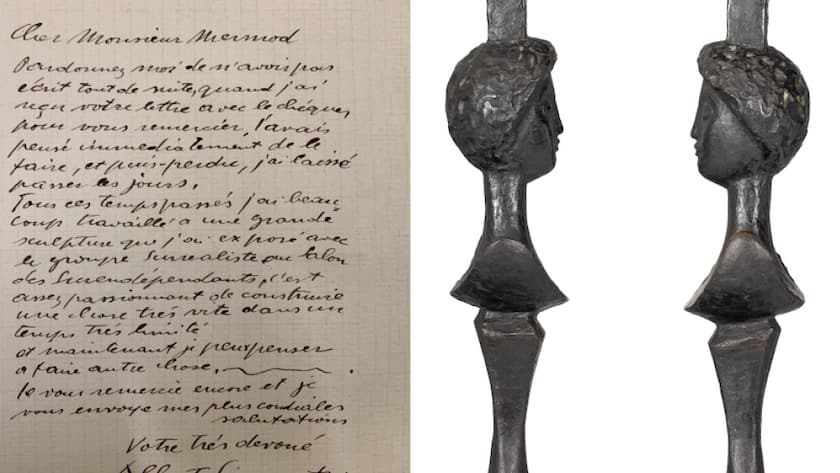 Cher Monsieur Mermod
Pardonnez moi de n'avoir pas
écrit tout de suite, quand j'ai
reçu votre lettre avec le chéque,
pour vous remercier, j'avais
pensé immediatement de le
faire, et puis perdu, j'ai laissé
passer les jours.
Tous ces temps passés j'ai beau
coup travaillé a une grande
sculpture que j'ai exposé avec
le groupe Surrealiste au Salon
des Surendépendants, c'est
assez passionnant de construire
une chose trés vite dans un
temps trés limité
et maintenant je peux penser
a faire autre chose.
Je vous remercie encore et je
vous envoye mes plus cordiales
salutations
Votre trés devoué